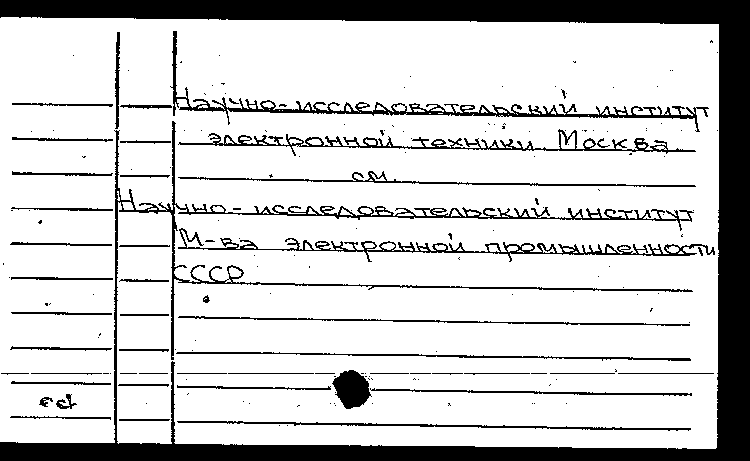 Научно-исследовательский институт
электронной техники. Москва.
см.
Научно-исследовательский институт
М-ва электронной промышленности
СССР